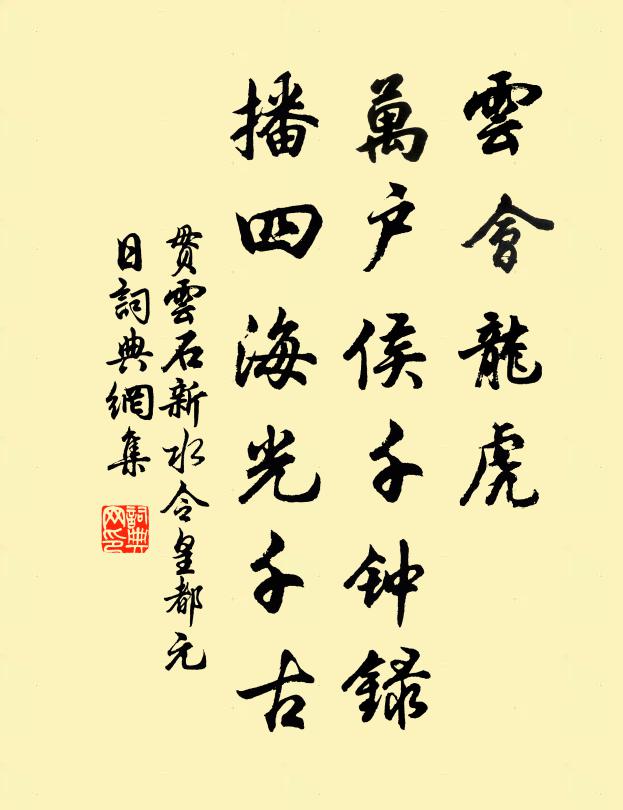 雲會龍虎
萬户侯千钟録
播四海光千古
贯雲石新水令皇都元
日詞典網集
詞典网印